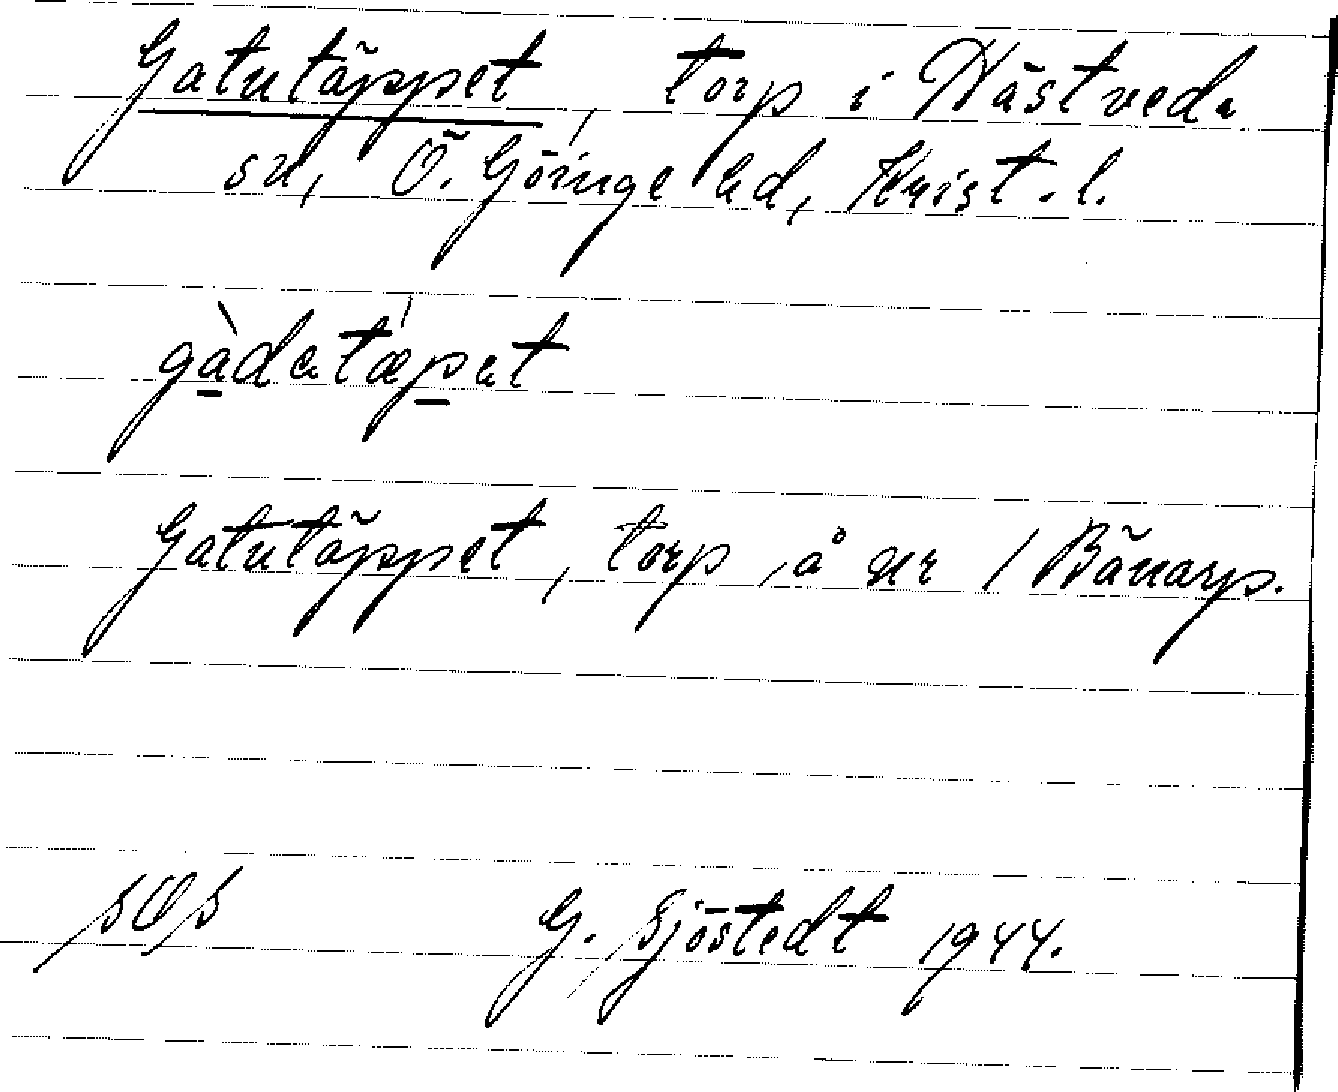 Gatutäppet, torp i Hästveda
sn, Ö. Göinge hd, Krist. l.
gàdatæ̍pat
Gatutäppet, torp, å nr 1 Bänarp.
G. Sjöstedt 1944.